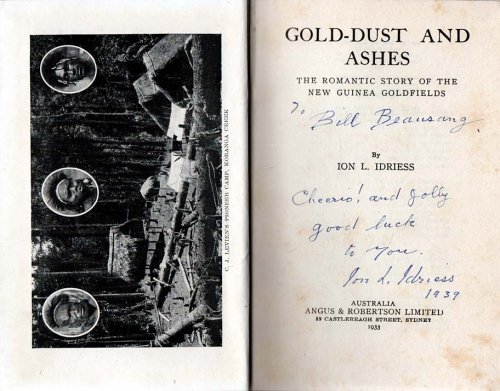 C. J. LEVIEN'S PIONEER CAMP, KORANGA CREEK
GOLD-DUST AND
ASHES
THE ROMANTIC STORY OF THE
NEW GUINEA GOLDFIELDS
To Bill Beausang
By
ION L. IDRIESS
Cheerio! and Jolly
good luck
to you.
Ion L. Idriess
1939
AUSTRALIA
ANGUS & ROBERTSON LIMITED
89 CASTLEREAGH STREET, SYDNEY
1933